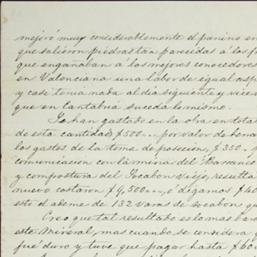 mejoró muy considerablemente el panino en
que salieron piedras tan parecidas á los f
que engañaban a los mejores conocedores
en Valenciana una labor de igual asp
y casi tenia nada al dia siguiente y vice
que en Cantabria suceda lo mismo.
Se han gastado en la obra en total
de esta cantidad $500.. por valor de bona
los gastos de la toma de posesión, $350.
comunicacion con la mina del
y compostura del Socabon Viejo, resulta
nuevo costaron $9,500.., ó digamos $40
esto el abono de 132 varas de socabon qu
Creo que tal resultado es lo mas ba
este mineral, mas cuando se considera q
fué duro y tuve que pagar hasta $60